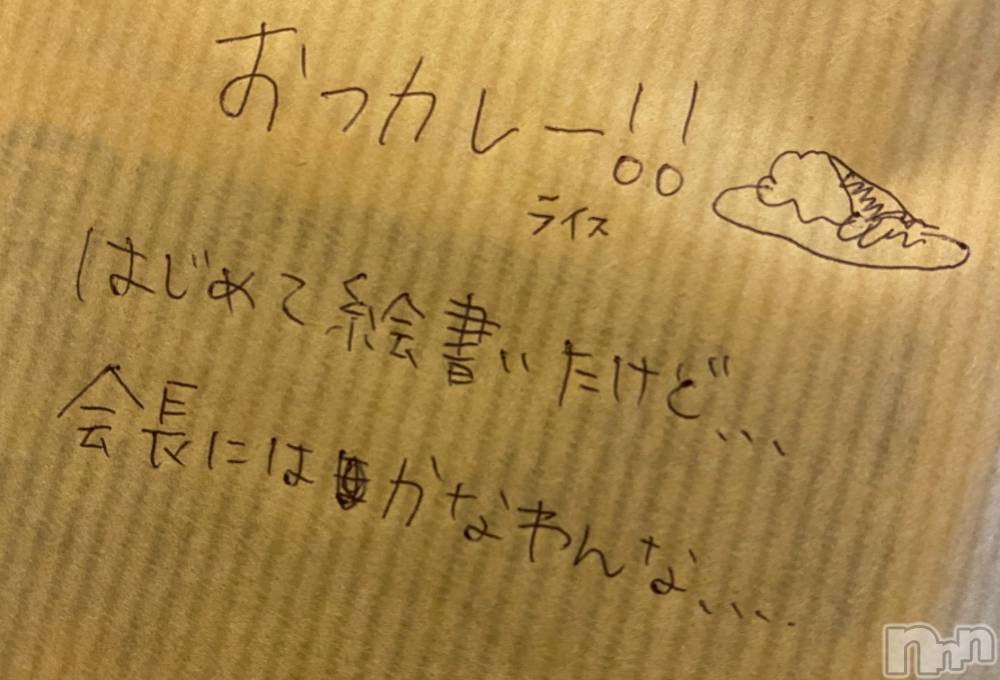 おつカレー!!
ライス
はじめて絵書いたけど、、、
会長にはかなわんな、、、、
nnn